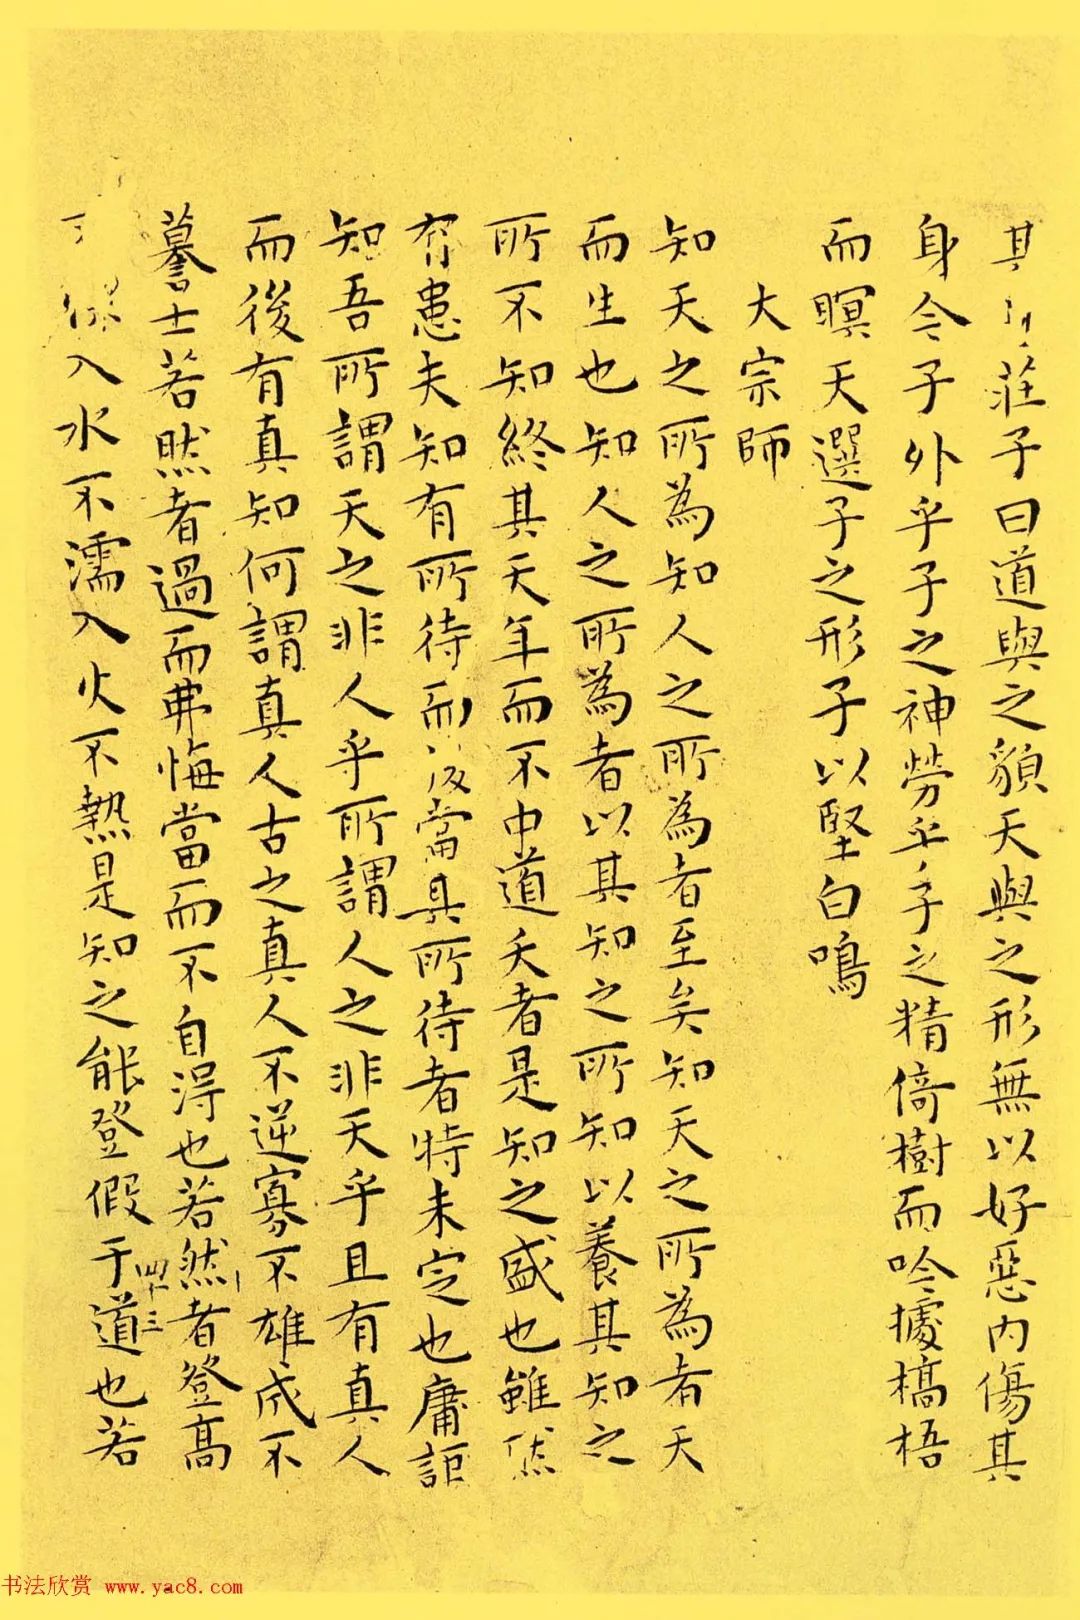 其 莊子曰道與之貌天與之形無以好惡內傷其
身今子外乎子之神勞乎子之精倚樹而吟據槁梧
而瞑天選子之形子以堅白鳴
大宗師
知天之所為知人之所為者至矣知天之所為者天
而生也知人之所為者以其知之所知以養其知之
所不知終其天年而不中道夭者是知之盛也雖然
有患夫知有所待而後當其所待者特未定也庸詎
知吾所謂天之非人乎所謂人之非天乎且有真人
而後有真知何謂真人古之真人不逆寡不雄成不
謩士若然者過而弗悔當而不自得也若然者登高
不慄入水不濡入火不熱是知之能登假于道也若
四十三
书法欣赏 www.yac8.com